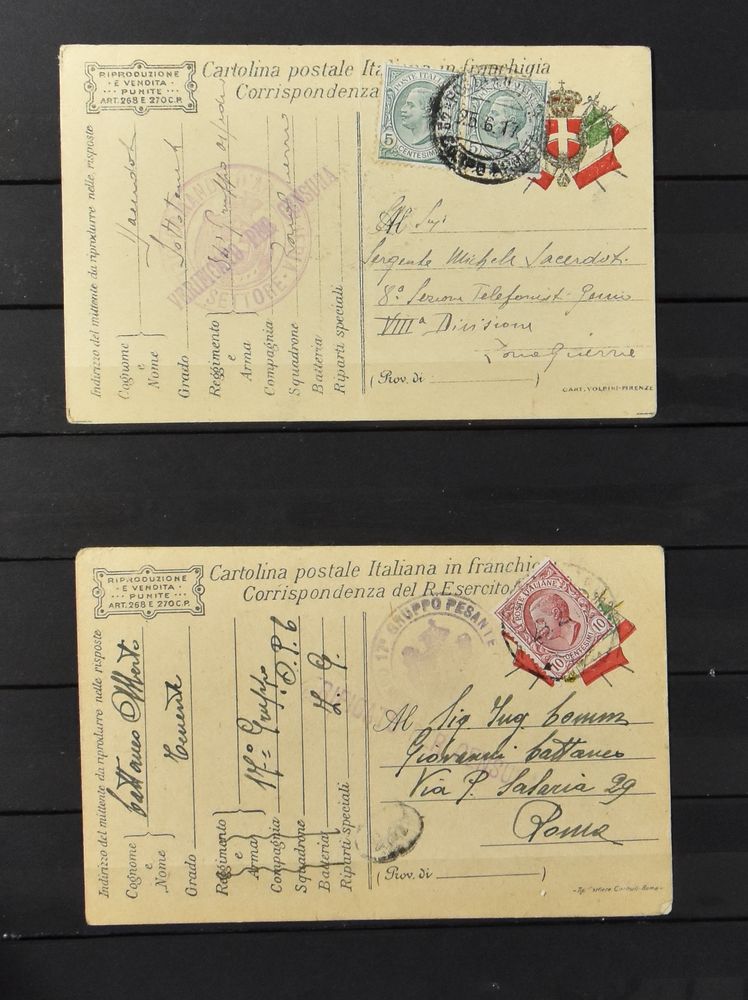 RIPRODUZIONE
E VENDITA
PUNITE
ART. 268 E 270 C.P.
Cartolina postale Italiana in franchigia
Corrispondenza
POSTE ITALIANE
5 CENTESIMI
25.6.17
VERIFICATO PER CENSURA
SETTORE
Indirizzo del mittente da riprodurre nelle risposte
Cognome
e
Nome
Grado
Reggimento
e
Arma
Compagnia
Squadrone
Batteria
Riparti speciali
Al Sig.
Sergente Michele Sacerdoti
8ª Sezione Telefonisti Genio
VIIIª Divisione
Zona Guerra
(Prov. di )
CART. VOLPINI-FIRENZE
RIPRODUZIONE
E VENDITA
PUNITE
ART. 268 E 270 C.P.
Cartolina postale Italiana in franchigia
Corrispondenza del R. Esercito
POSTE ITALIANE
10 CENTESIMI 10
17º GRUPPO PESANTE
Indirizzo del mittente da riprodurre nelle risposte
Cognome
e
Nome
Cattaneo
Grado
Tenente
Reggimento
e
Arma
17º Gruppo
Compagnia
Squadrone
Batteria
Z. G.
Riparti speciali
Al Sig. Ing. Comm
Giovanni Cattaneo
Via P. Salaria 29
Roma
(Prov. di )